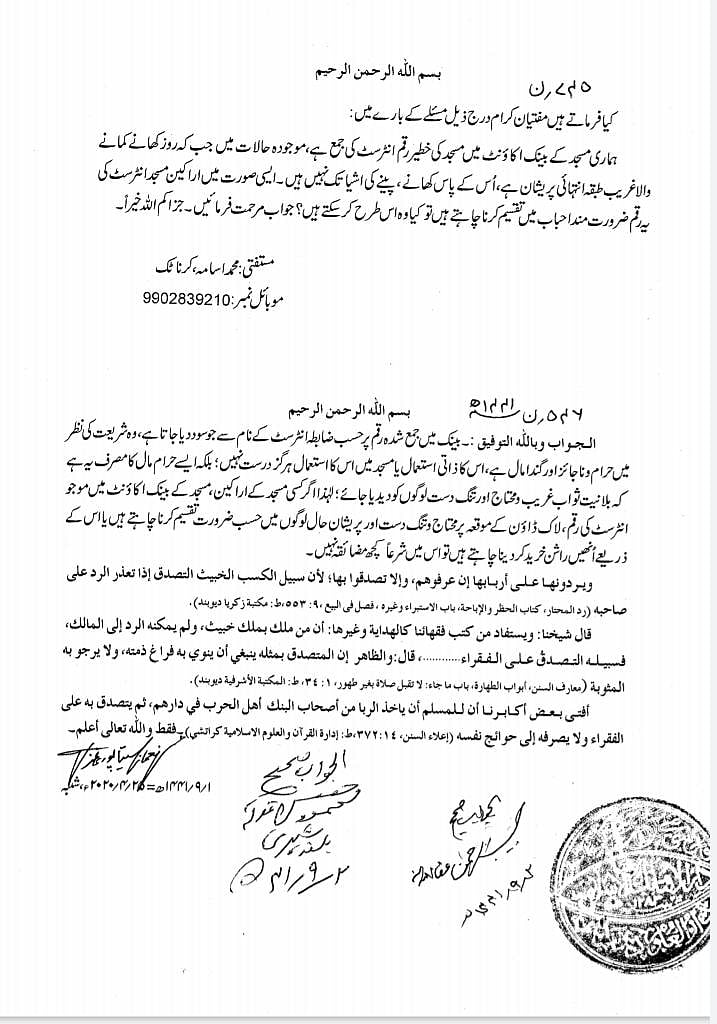 بسم الله الرحمن الرحیم
۷۴۵/ن
کیا فرماتے ہیں مفتیان کرام درج ذیل مسئلے کے بارے میں:
ہماری مسجد کے بینک اکاؤنٹ میں مسجد کی خطیر رقم انٹرسٹ کی جمع ہے، موجودہ حالات میں جب کہ روز کھانے کمانے
والا غریب طبقہ انتہائی پریشان ہے، اُس کے پاس کھانے، پینے کی اشیا تک نہیں ہیں۔ ایسی صورت میں اراکین مسجد انٹرسٹ کی
یہ رقم ضرورت مند احباب میں تقسیم کرنا چاہتے ہیں تو کیا وہ اس طرح کر سکتے ہیں؟ جواب مرحمت فرمائیں۔ جزاکم اللہ خیراً۔
مستفتی: محمد اسامہ، کرناٹک
موبائل نمبر: 9902839210
بسم الله الرحمن الرحیم
۵۴۶/ن ۱۴۴۱ھ
الجواب وبالله التوفيق:۔ بینک میں جمع شدہ رقم پر حسب ضابطہ انٹرسٹ کے نام سے جو سود دیا جاتا ہے، وہ شریعت کی نظر
میں حرام و ناجائز اور گندا مال ہے، اس کا ذاتی استعمال یا مسجد میں اس کا استعمال ہرگز درست نہیں؛ بلکہ ایسے حرام مال کا مصرف یہ ہے
کہ بلانیت ثواب غریب و محتاج اور تنگ دست لوگوں کو دیدیا جائے؛ لہٰذا اگر کسی مسجد کے اراکین، مسجد کے بینک اکاؤنٹ میں موجو
انٹرسٹ کی رقم، لاک ڈاؤن کے موقعہ پر محتاج و تنگ دست اور پریشان حال لوگوں میں حسب ضرورت تقسیم کرنا چاہتے ہیں یا اس کے
ذریعے اُنھیں راشن خرید کر دینا چاہتے ہیں تو اس میں شرعاً کچھ مضائقہ نہیں۔
ويردونها على أربابها إن عرفوهم، وإلا تصدقوا بها؛ لأن سبيل الكسب الخبيث التصدق إذا تعذر الرد على
صاحبه (رد المحتار، كتاب الحظر والإباحة، باب الاستبراء وغيره، فصل في البيع، ۹: ۵۵۳، ط: مكتبة زكريا ديوبند).
قال شيخنا: ويستفاد من كتب فقهائنا كالهداية وغيرها: أن من ملك بملك خبيث، ولم يمكنه الرد إلى المالك،
فسبيله التصدق على الفقراء............، قال: والظاهر إن المتصدق بمثله ينبغي أن ينوي به فراغ ذمته، ولا يرجو به
المثوبة (معارف السنن، أبواب الطهارة، باب ما جاء: لا تقبل صلاة بغير طهور، ۱: ۳٤، ط: المكتبة الأشرفية ديوبند).
أفتى بعض أكابرنا أن للمسلم أن ياخذ الربا من أصحاب البنك أهل الحرب في دارهم، ثم يتصدق به على
الفقراء ولا يصرفه إلى حوائج نفسه (إعلاء السنن، ۱٤: ۳۷۲، ط: إدارة القرآن والعلوم الاسلامية كراتشي)۔ فقط والله تعالى أعلم۔
۱/۹/۱۴۴۱ھ=۲۵/۴/۲۰۲۰ء، شنبہ
الجواب صحیح
بلند شہری
۲/۹/۴۱ھ
الجواب صحیح